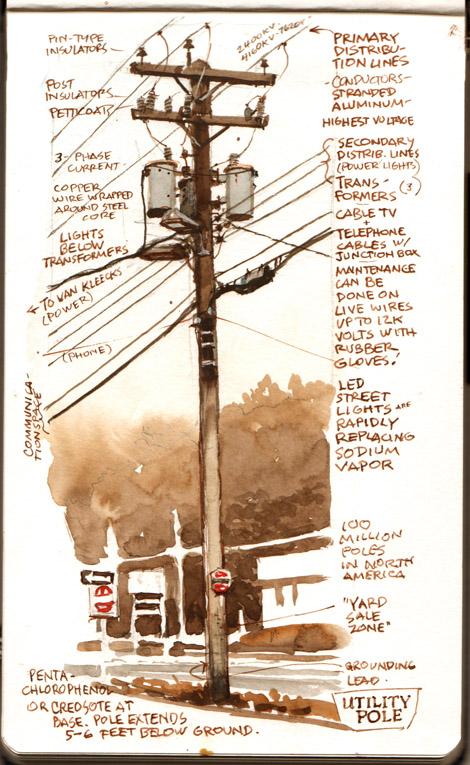 PIN-TYPE
INSULATORS
POST
INSULATORS
PETTICOATS
3-PHASE
CURRENT
COPPER
WIRE WRAPPED
AROUND STEEL
CORE
LIGHTS
BELOW
TRANSFORMERS
TO VAN KLEECKS
(POWER)
(PHONE)
COMMUNICA-
TIONSPACE
2400KV
PRIMARY
DISTRIBU-
TION LINES
CONDUCTORS-
STRANDED
ALUMINUM-
HIGHEST VOLTAGE
SECONDARY
DISTRIB. LINES
(POWER, LIGHTS)
TRANS-
FORMERS (3)
CABLE TV
+
TELEPHONE
CABLES W/
JUNCTION BOX
MAINTENANCE
CAN BE
DONE ON
LIVE WIRES
UP TO 12K
VOLTS WITH
RUBBER
GLOVES!
LED
STREET
LIGHTS ARE
RAPIDLY
REPLACING
SODIUM
VAPOR
100
MILLION
POLES
IN NORTH
AMERICA
"YARD
SALE
ZONE"
GROUNDING
LEAD.
UTILITY
POLE
PENTA-
CHLOROPHENOL
OR CREOSOTE AT
BASE. POLE EXTENDS
5-6 FEET BELOW GROUND.